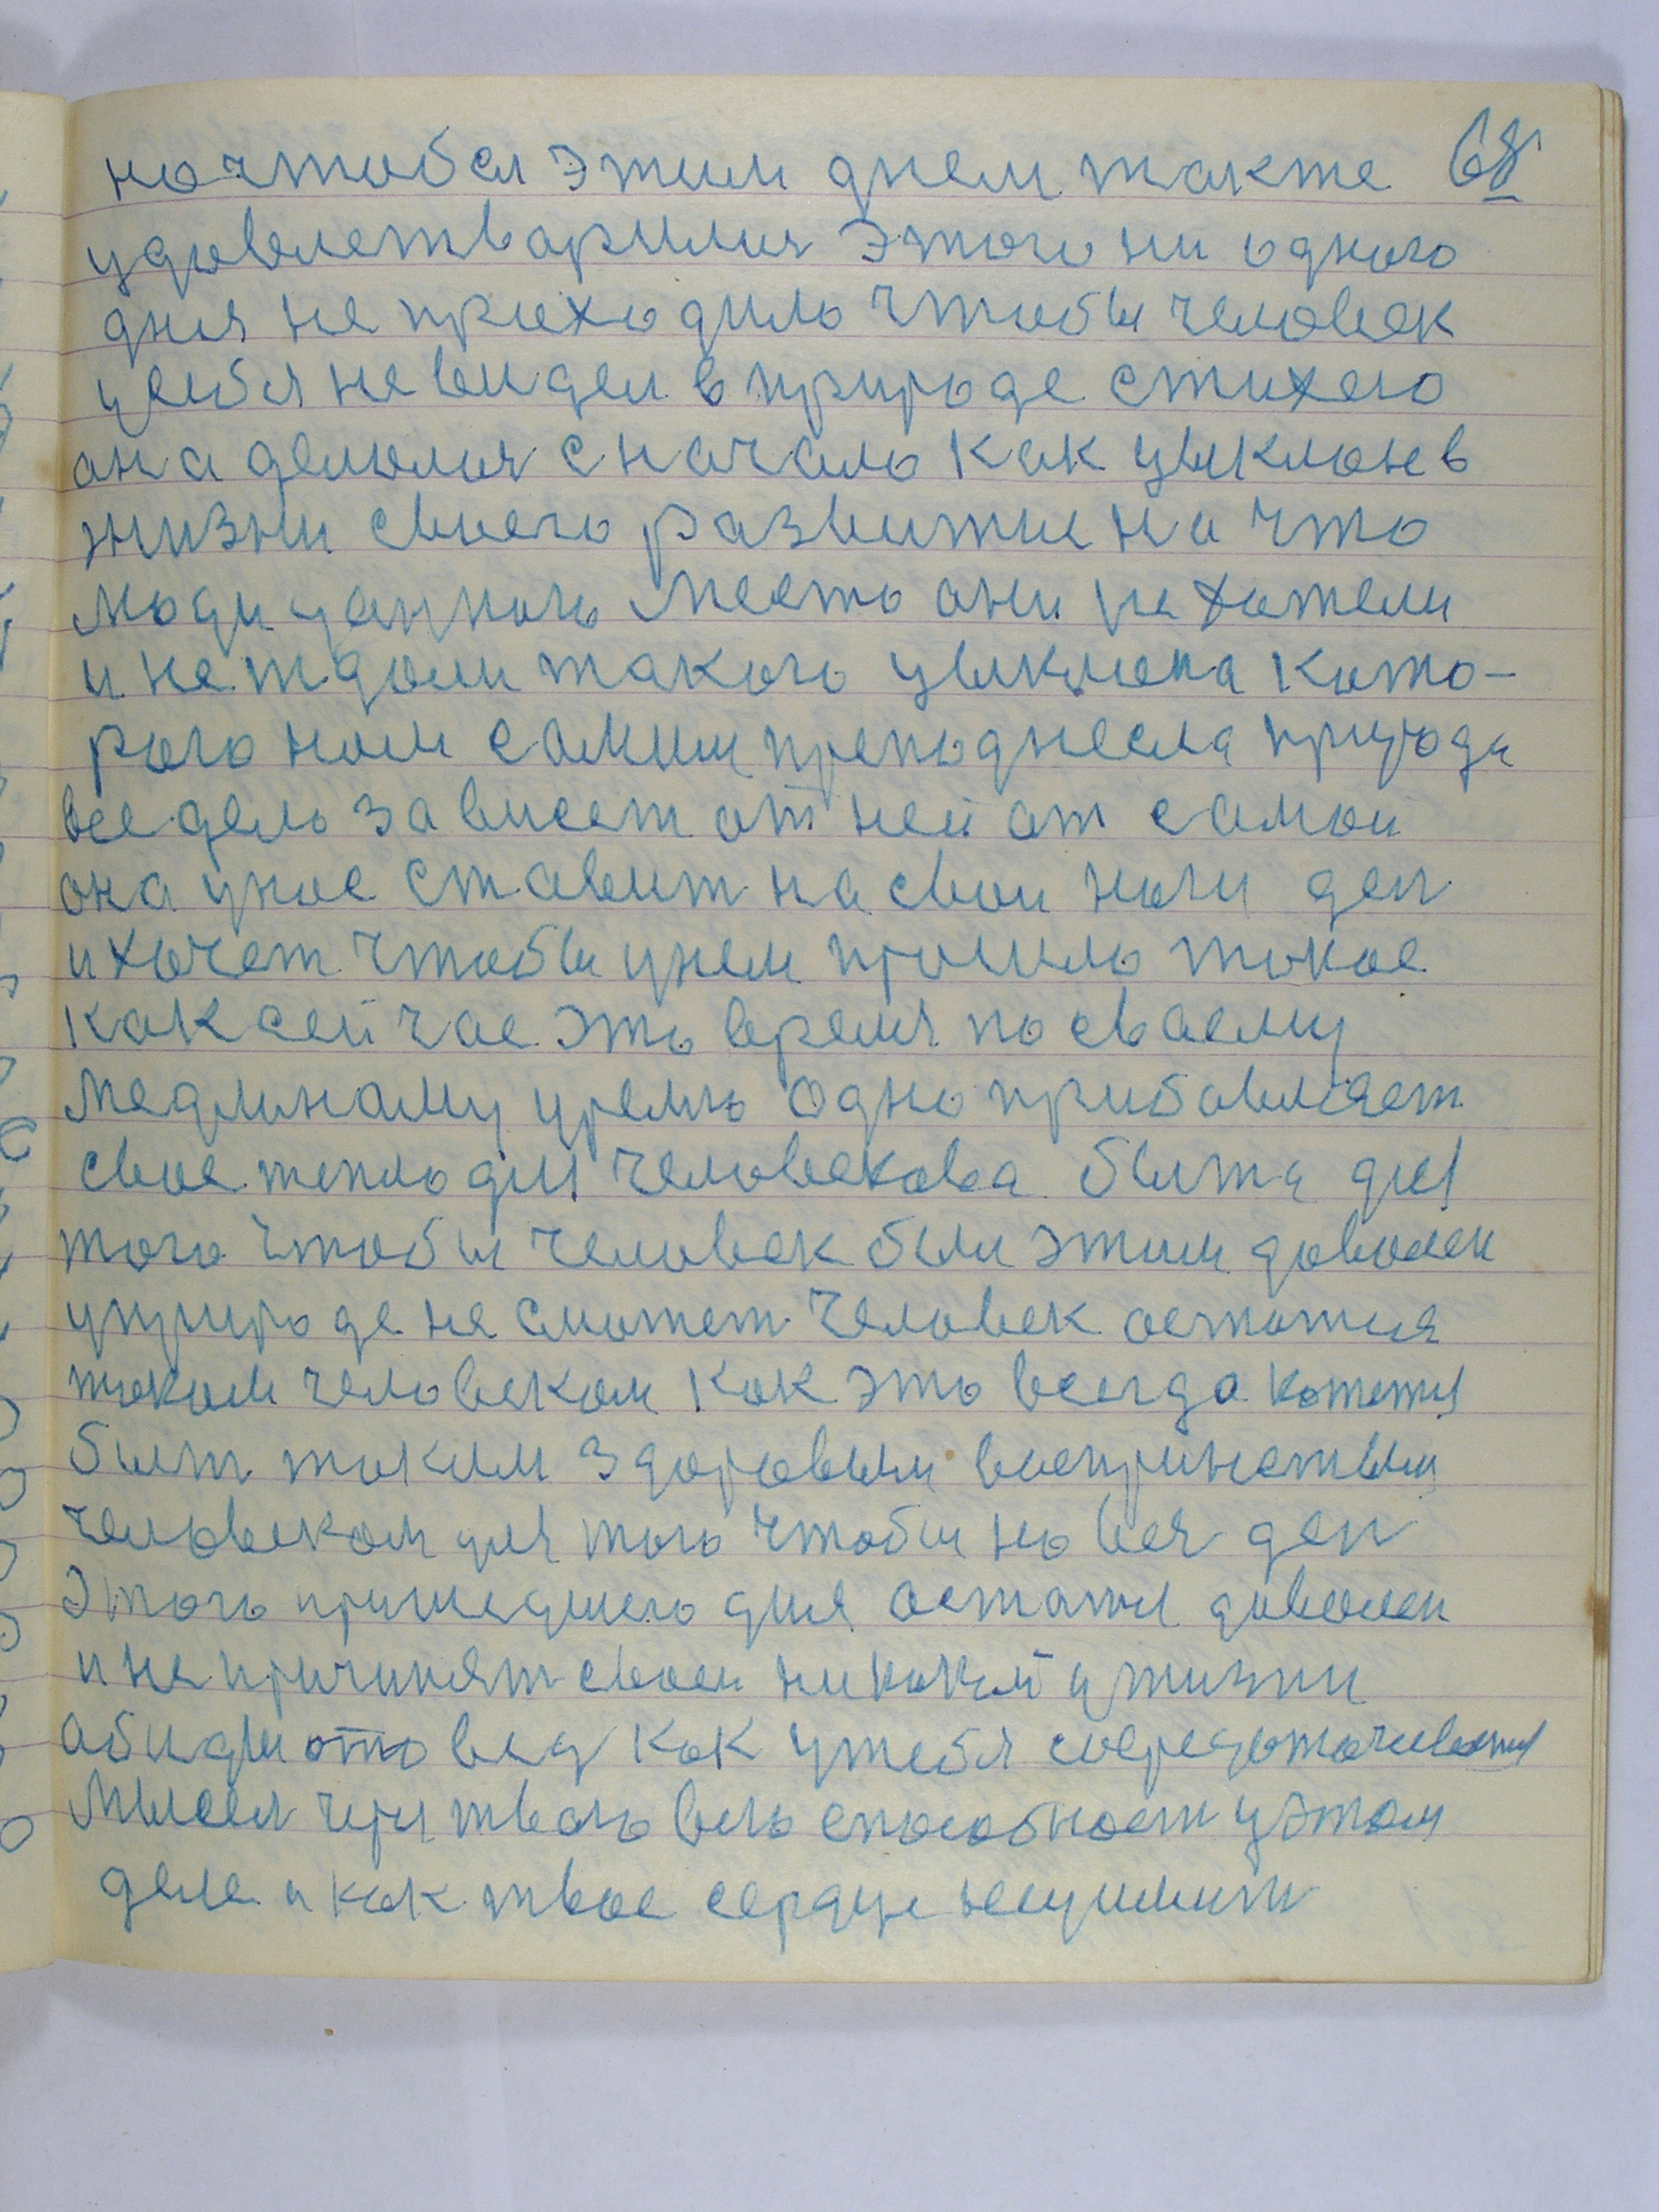 но чтобы этим днем также 68
удовлетварился этого ни одного
дня не приходило чтобы человек
уебя не видел в природе стихею
она делылися сначало как цыклон в
жизни своего развитие на что
люди у данного место они не хотели
и не ждали такого цыклона кото-
рого ном самим преподнесла природа
все дело зависет от ней от самой
она унас ставит на свои ноги ден
и хочет чтобы унем прошло такое
как сейчас это время по сваему
медлинаму уремю одно прибовляет
свое тепло для человекова быта для
того чтобы человек был этим доволен
уприроде не сможет человек остотися
таком человеком как это всегда хотется
быт таким здоровым воспринетым
человеком для того чтобы но вся ден
этого пришедшего дня остатся доволен
и не причинят своей никокой ужизни
абиды ото вед как утебя сосредоточивается
Мысел при твоего способност уэтом
деле и как твое сердце